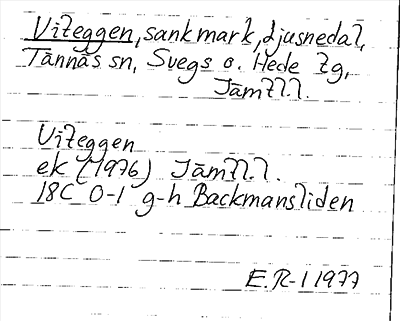 Viteggen, sankmark, Ljusnedal,
Tännäs sn, Svegs o. Hede tg,
Jämtl.l.
Viteggen
ek (1976) Jämtl.l.
18C 0-1 g-h Backmansliden
E.R-l 1977